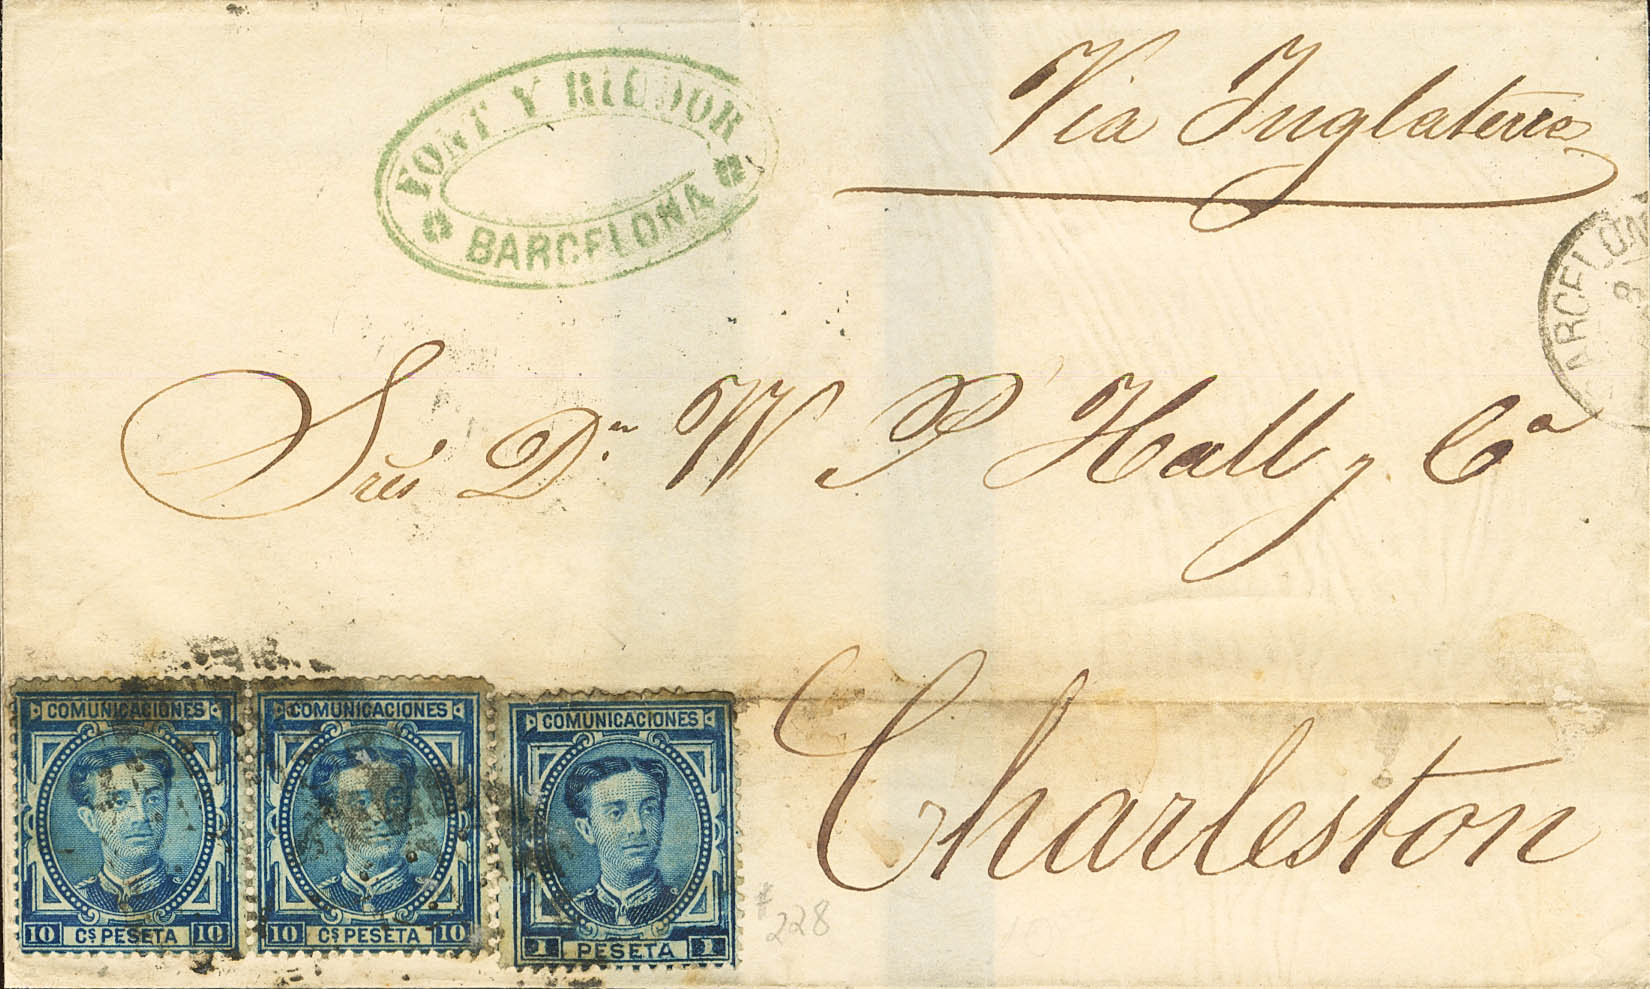 Via Inglaterra
FONT Y RIUDOR
BARCELONA
BARCELON
8
Sres Dn W P Hall y Ca
Charleston
COMUNICACIONES
10 Cs PESETA 10
COMUNICACIONES
10 Cs PESETA 10
COMUNICACIONES
1 PESETA 1
228